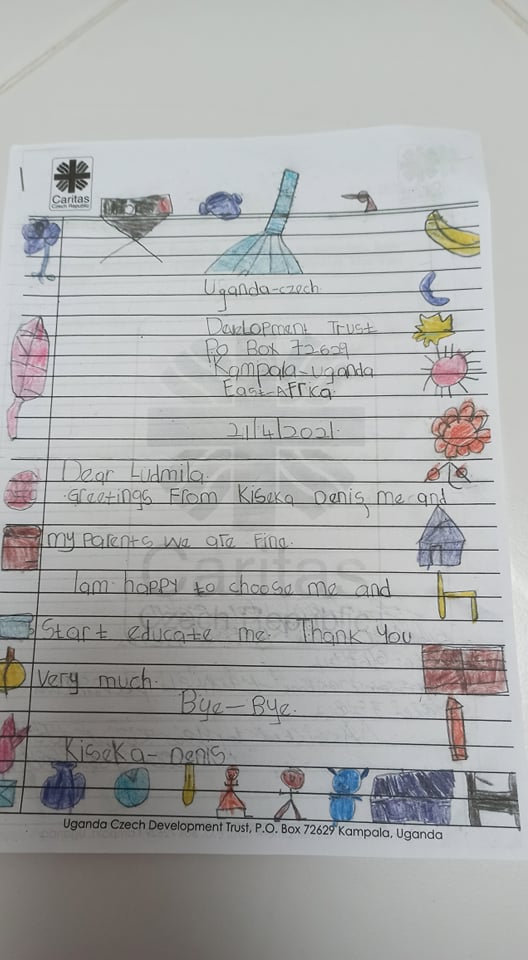 Caritas
Czech Republic
Uganda-czech
Development Trust
Po Box 72629
Kampala-uganda
East-AFrica
21/4/2021.
Dear Ludmila.
Greetings From Kiseka Denis, me and
my parents we are Fine.
I am happy to choose me and
Start educate me. Thank you
very much.
Bye-Bye.
Kiseka-Denis.
Uganda Czech Development Trust, P.O. Box 72629 Kampala, Uganda